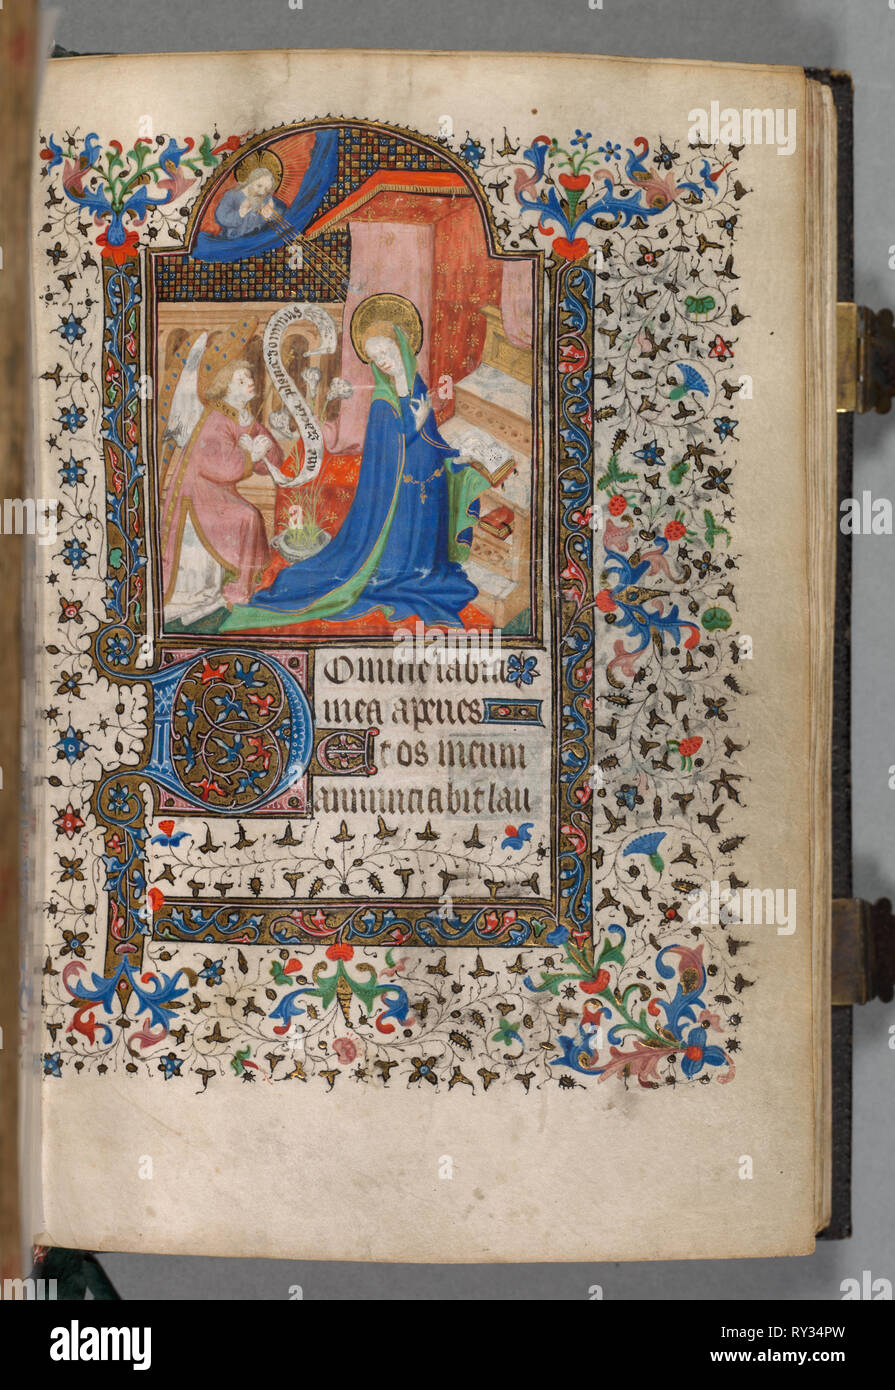 aue gracia plena dominus
Domine labia
mea aperies
Et os meum
annunciabit lau
alamy
Image ID: RY34PW
www.alamy.com